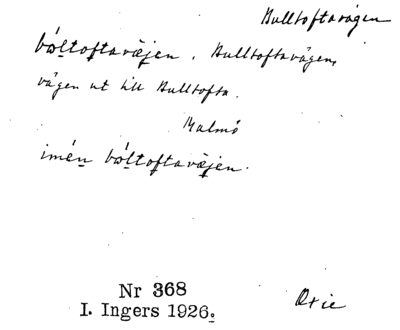 Bulltoftavägen
bóltoftavä̀jen. Bulltoftavägen,
vägen ut till Bulltofta.
Malmö
imén bóltoftavä̀jen.
Nr 368
I. Ingers 1926.
Oxie